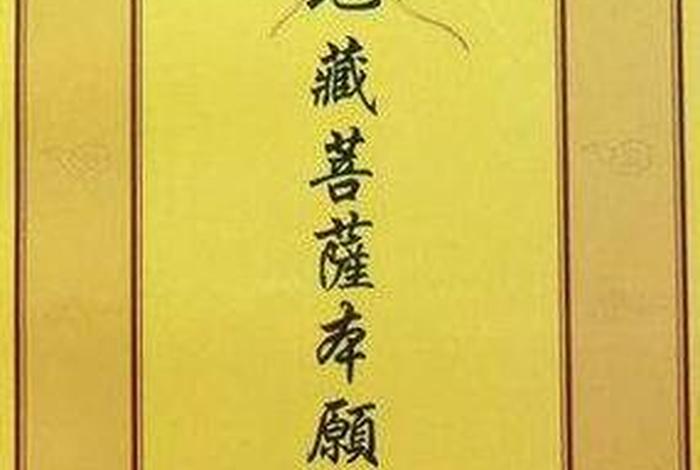 藏菩薩本願